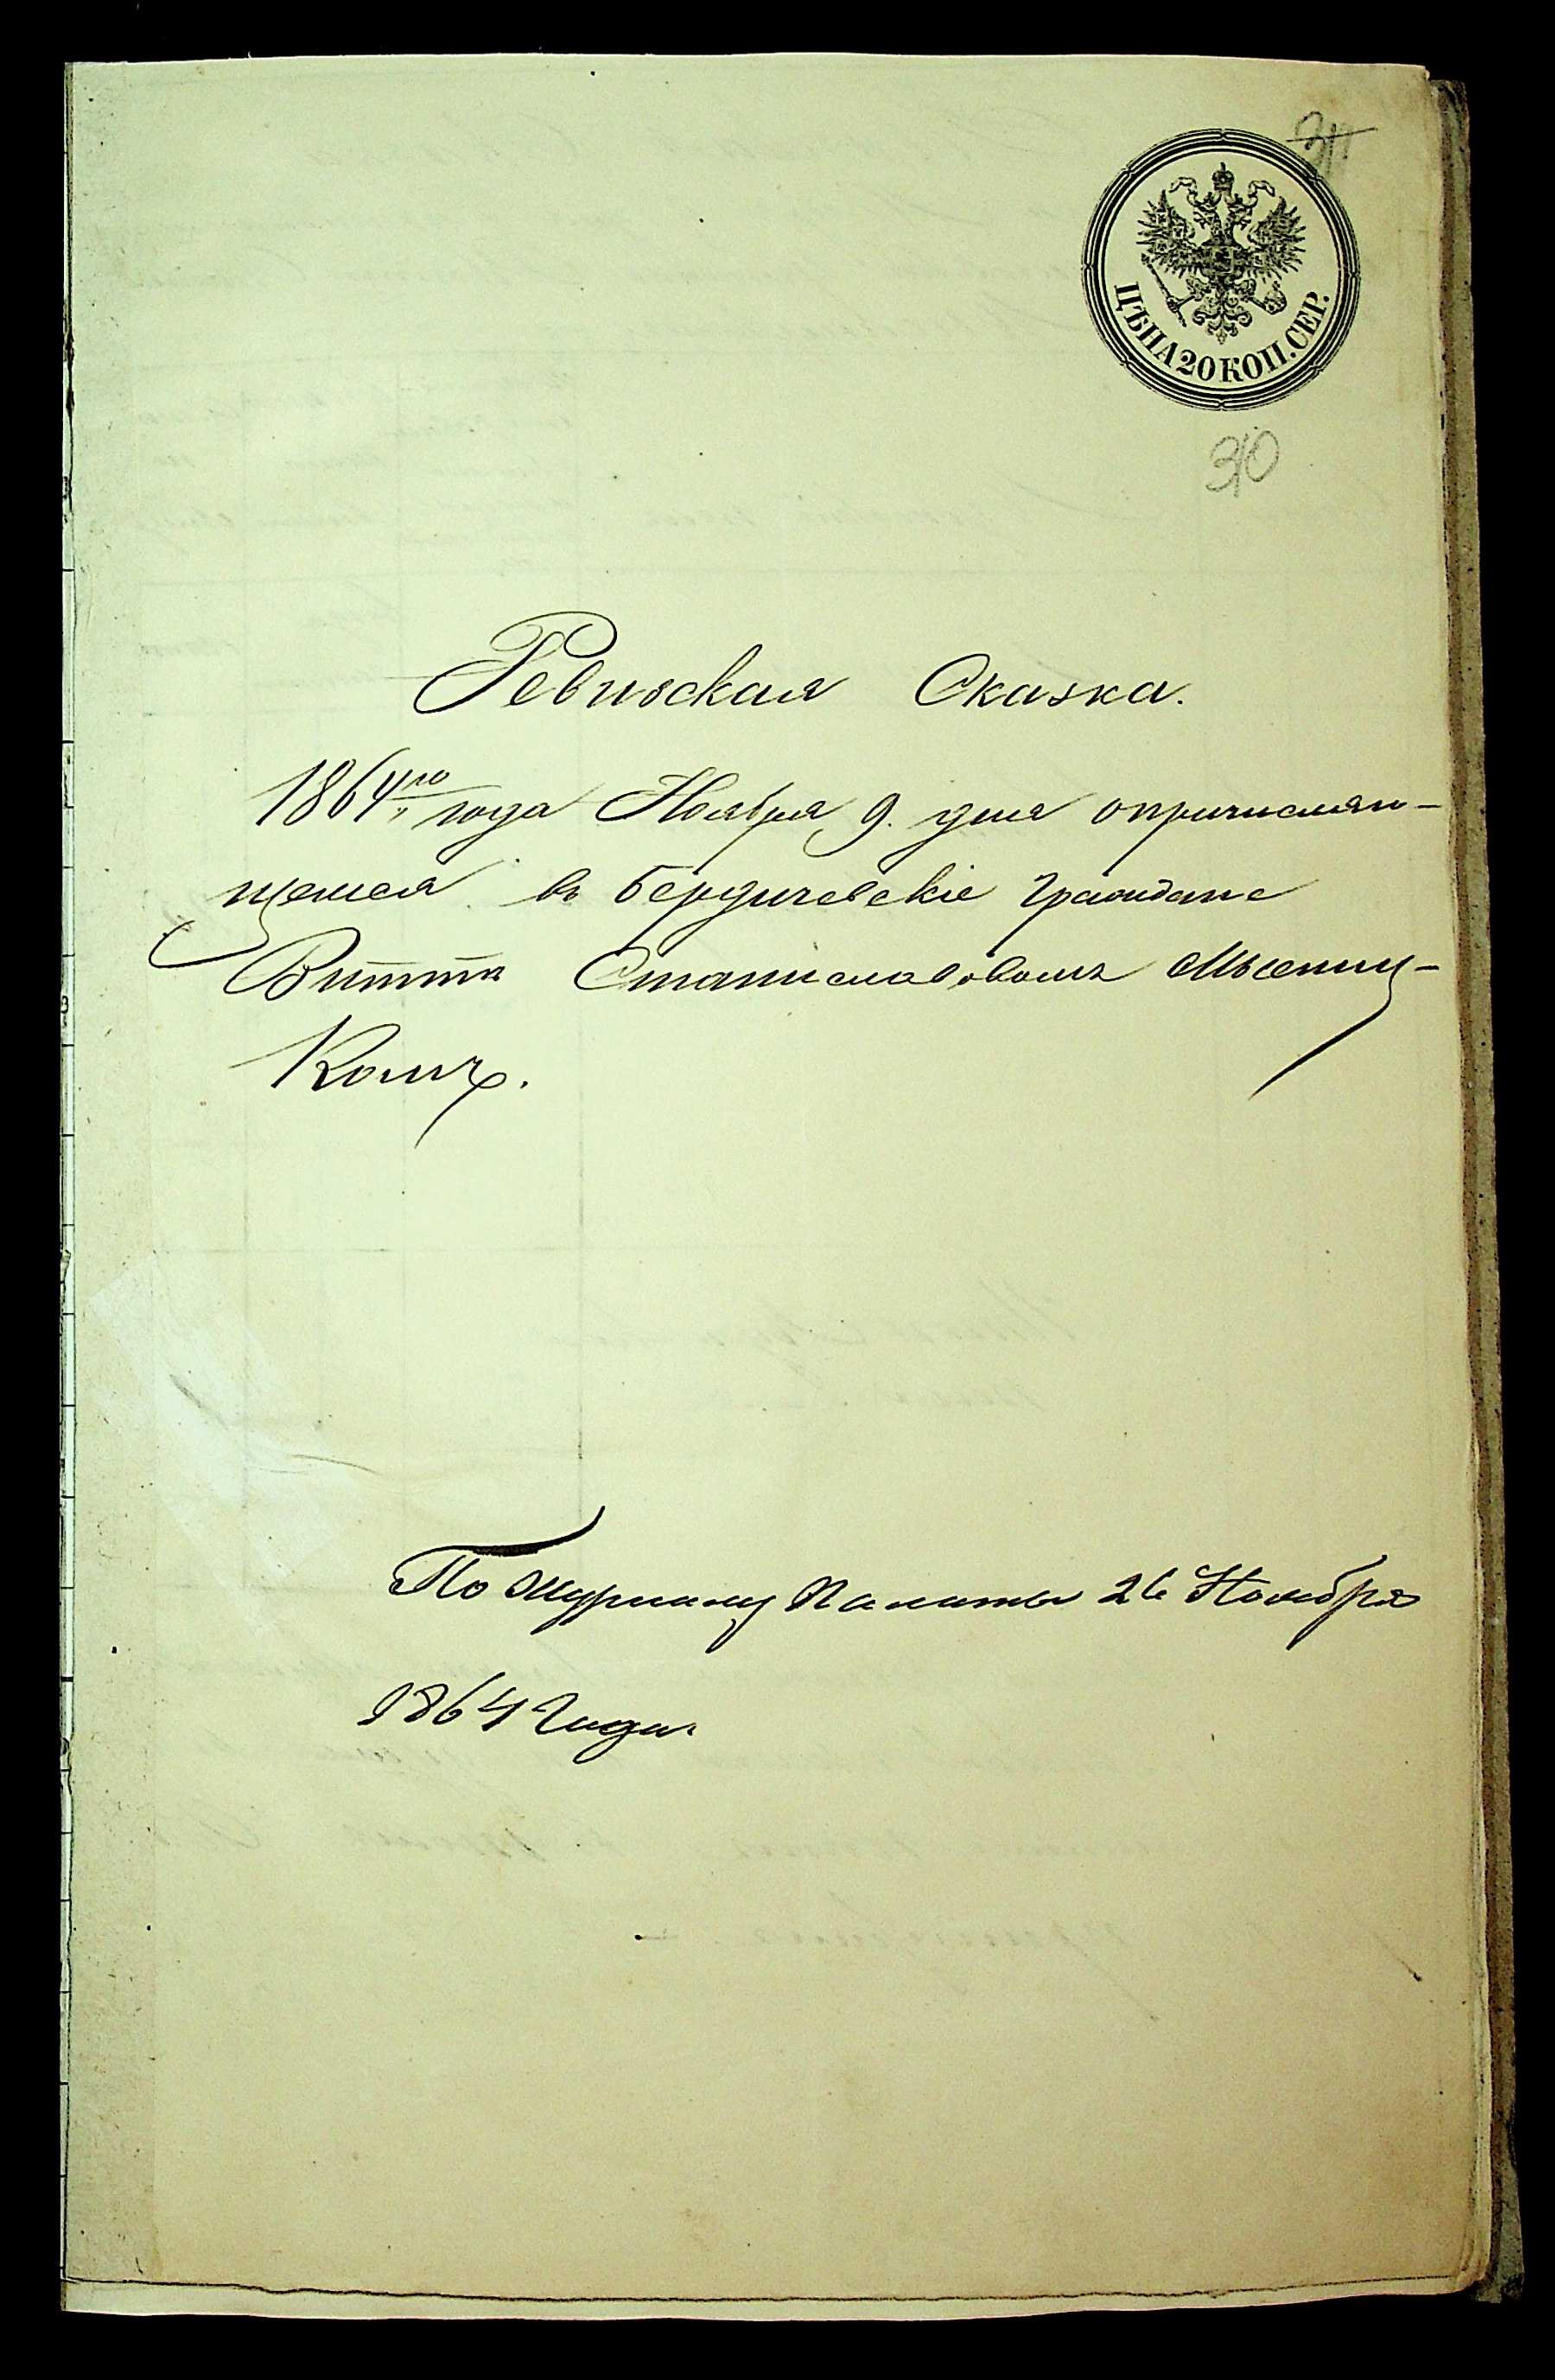 ЦѢНА 20 КОП. СЕР.
310
Ревизская Сказка.
1864го года Ноября 9. дня о причисляю-
щемся въ бердичевскіе граждане
Витта Станиславовомъ
Комъ.
По Журналу Палаты 26 Ноября
1864 Года